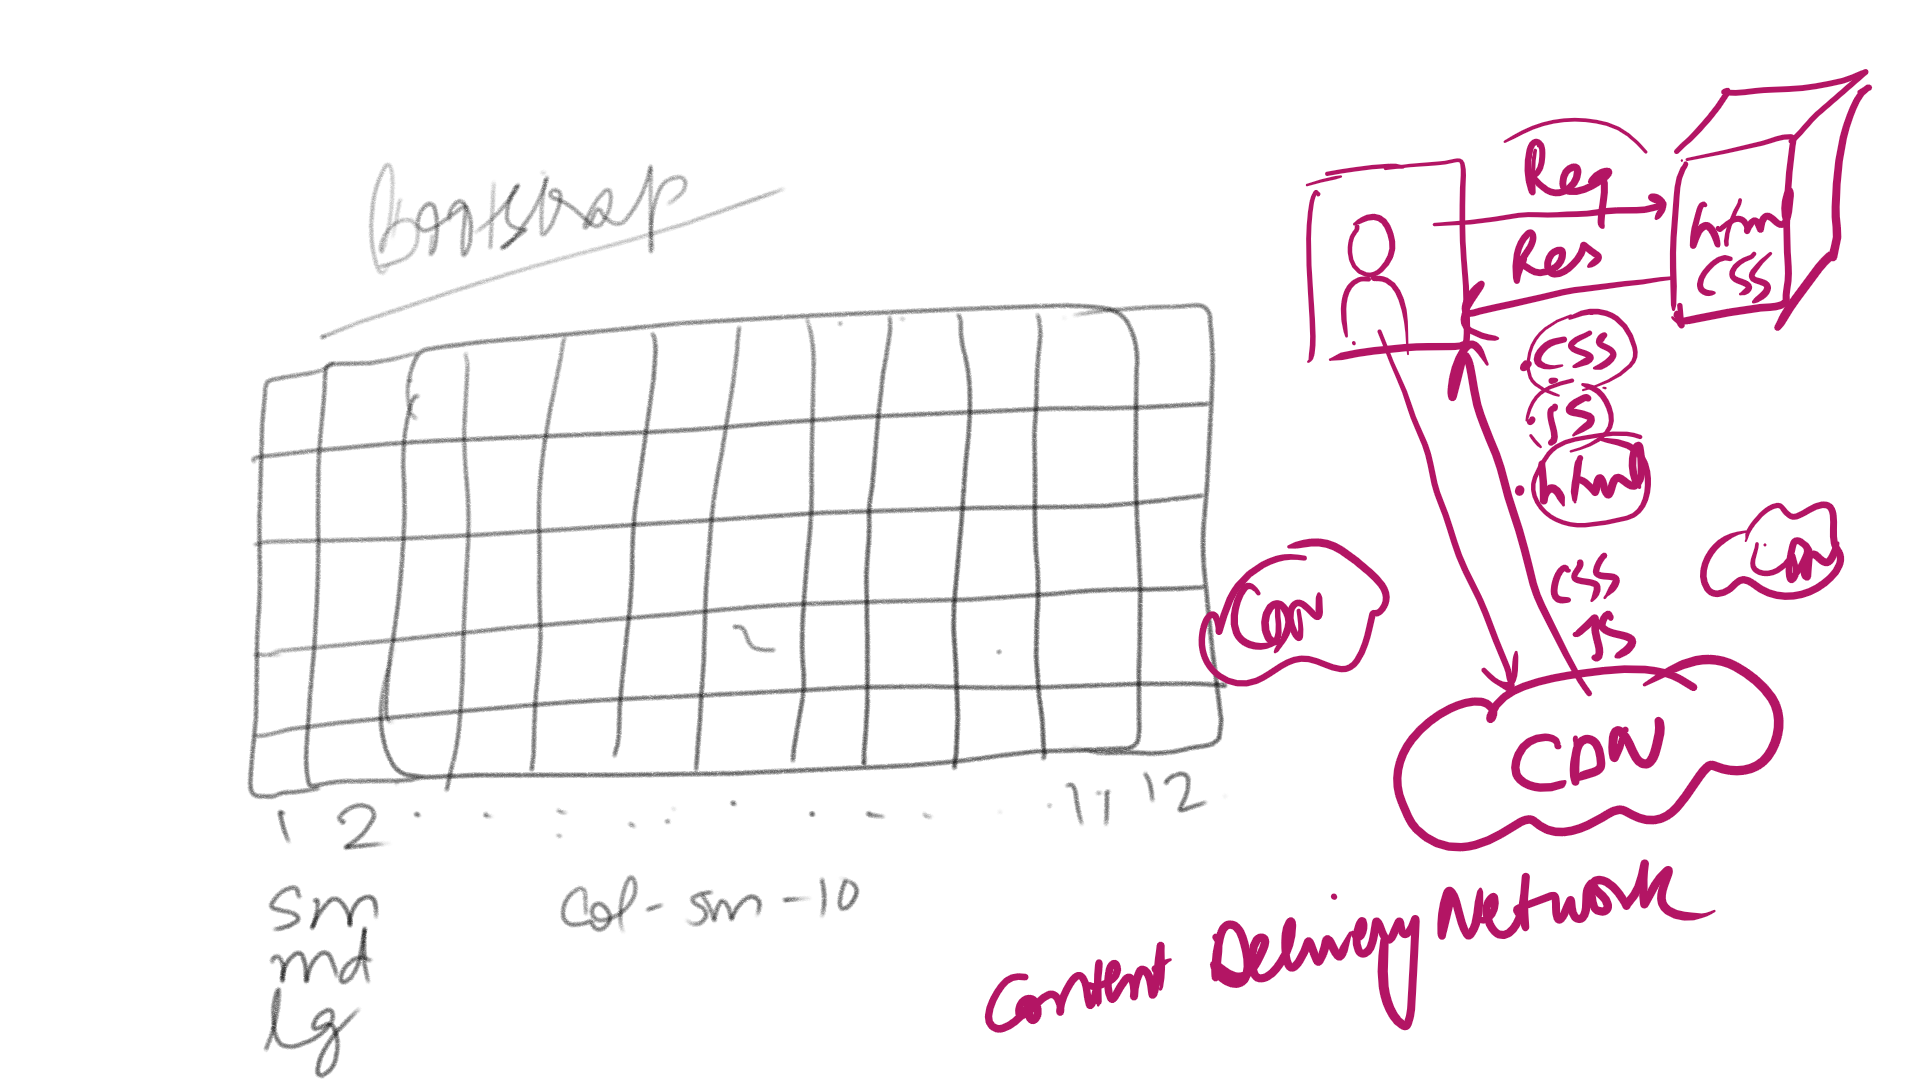 Bootstrap
1 2 . . . . . . . . 11 12
sm
md
lg
col-sm-10
Req
Res
html
CSS
CSS
JS
html
CSS
JS
CDN
CDN
CDN
Content Delivery Network